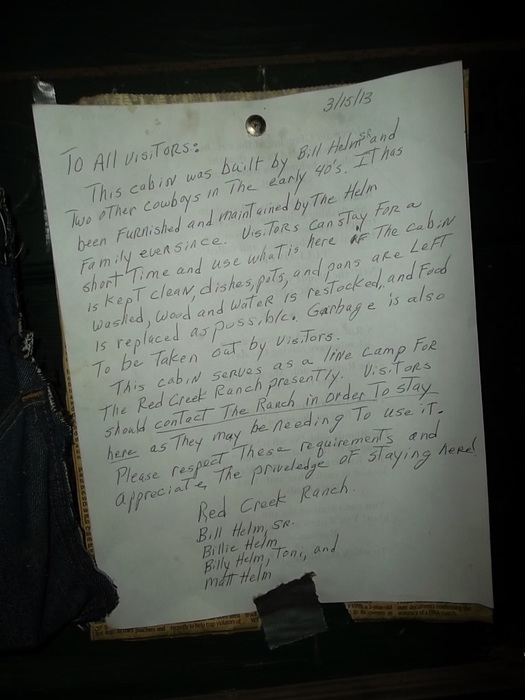 3/15/13
To All Visitors:
This cabin was built by Bill Helm Sr and
Two other cowboys in The early 40's. It has
been Furnished and maintained by The Helm
Family ever since. Visitors can stay For a
short Time and use what is here iF The cabin
is kept clean, dishes, pots, and pans are LeFt
washed, Wood and Water is restocked, and Food
is replaced as possible. Garbage is also
To be Taken out by visitors.
This cabin serves as a line camp For
The Red Creek Ranch presently. Visitors
should contact The Ranch in order To stay
here as They may be needing To use iT.
Please respect These requirements and
appreciate The priveledge oF staying here!
Red Creek Ranch.
Bill Helm, SR.
Billie Helm
Billy Helm, Toni, and
Matt Helm